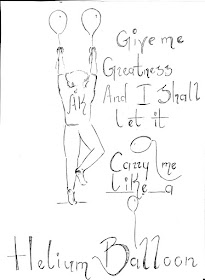 Give me
Greatness
And I Shall
Let it
Carry me
Like a
Helium Balloon
AK